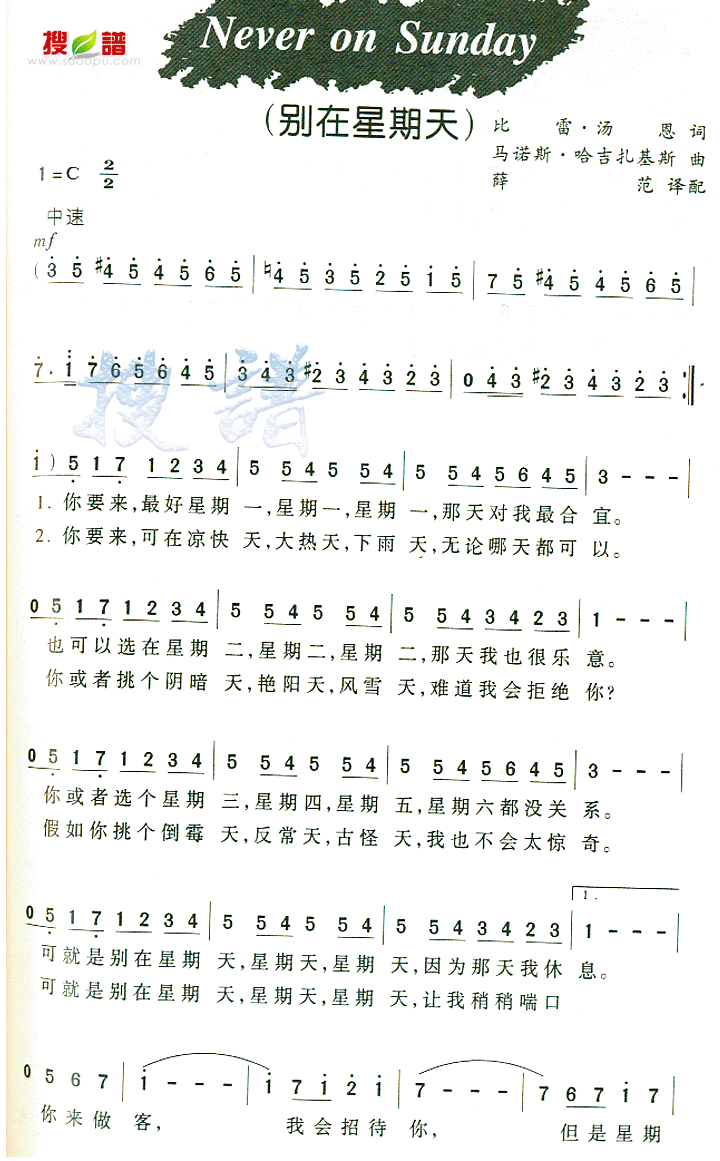 搜谱
www.sooopu.com
Never on Sunday
(别在星期天)
比雷·汤恩 词
马诺斯·哈吉扎基斯 曲
薛范 译配
1=C 2/2
中速
mf
(3 5 #4 5 4 5 6 5 | ♮4 5 3 5 2 5 1 5 | 7 5 #4 5 4 5 6 5 |
7. 1 7 6 5 6 4 5 | 3 4 3 #2 3 4 3 2 3 | 0 4 3 #2 3 4 3 2 3 :||
i) 5 1 7 1 2 3 4 | 5 5 4 5 5 4 | 5 5 4 5 6 4 5 | 3 - - - |
1. 你要来,最好星期 一,星期一,星期 一,那天对我最合 宜。
2. 你要来,可在凉快 天,大热天,下雨 天,无论哪天都可 以。
0 5 1 7 1 2 3 4 | 5 5 4 5 5 4 | 5 5 4 3 4 2 3 | 1 - - - |
也可以选在星期 二,星期二,星期 二,那天我也很乐 意。
你或者挑个阴暗 天,艳阳天,风雪 天,难道我会拒绝 你?
0 5 1 7 1 2 3 4 | 5 5 4 5 5 4 | 5 5 4 5 6 4 5 | 3 - - - |
你或者选个星期 三,星期四,星期 五,星期六都没关 系。
假如你挑个倒霉 天,反常天,古怪 天,我也不会太惊 奇。
1.
0 5 1 7 1 2 3 4 | 5 5 4 5 5 4 | 5 5 4 3 4 2 3 | 1 - - - |
可就是别在星期 天,星期天,星期 天,因为那天我休 息。
可就是别在星期 天,星期天,星期 天,让我稍稍喘口
0 5 6 7 | i - - - | i 7 i 2 i | 7 - - - | 7 6 7 i 7 |
你来做 客, 我会招待 你, 但是星期